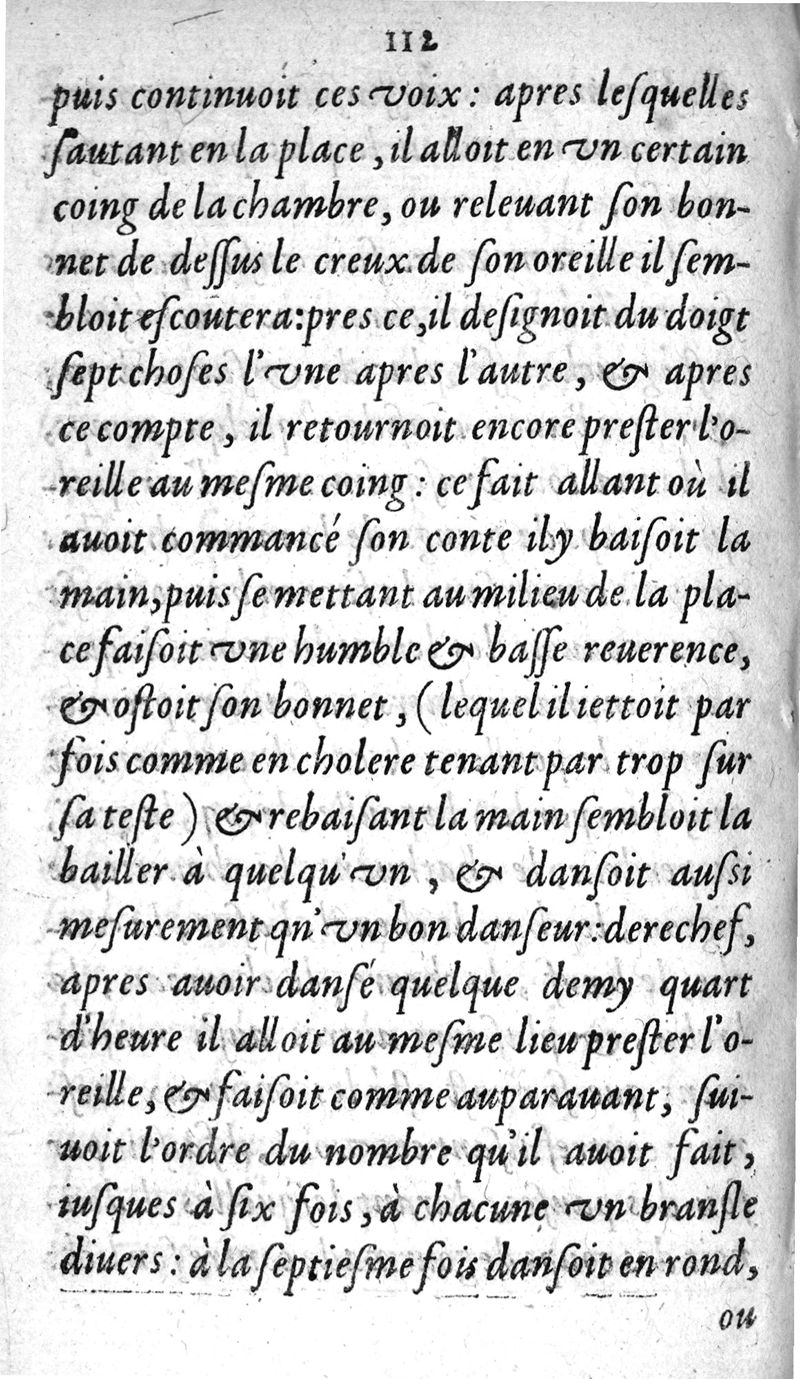 112
puis continuoit ces voix : apres leſquelles
ſautant en la place, il alloit en vn certain
coing de la chambre, ou releuant ſon bon-
net de deſſus le creux de ſon oreille il ſem-
bloit eſcoutera:pres ce,il deſignoit du doigt
ſept choſes l'vne apres l'autre, & apres
ce compte, il retournoit encore preſter l'o-
reille au meſme coing : ce fait allant où il
auoit commancé ſon conte il y baiſoit la
main,puis ſe mettant au milieu de la pla-
ce faiſoit vne humble & baſſe reuerence,
& oſtoit ſon bonnet, (lequel il iettoit par
fois comme en cholere tenant par trop ſur
ſa teſte) & rebaiſant la main ſembloit la
bailler à quelqu'vn, & danſoit auſsi
meſurement qn'vn bon danſeur:derechef,
apres auoir danſé quelque demy quart
d'heure il alloit au meſme lieu preſter l'o-
reille, & faiſoit comme auparauant, ſui-
uoit l'ordre du nombre qu'il auoit fait,
iuſques à ſix fois, à chacune vn branſle
diuers : à la ſeptieſme fois danſoit en rond,
ou